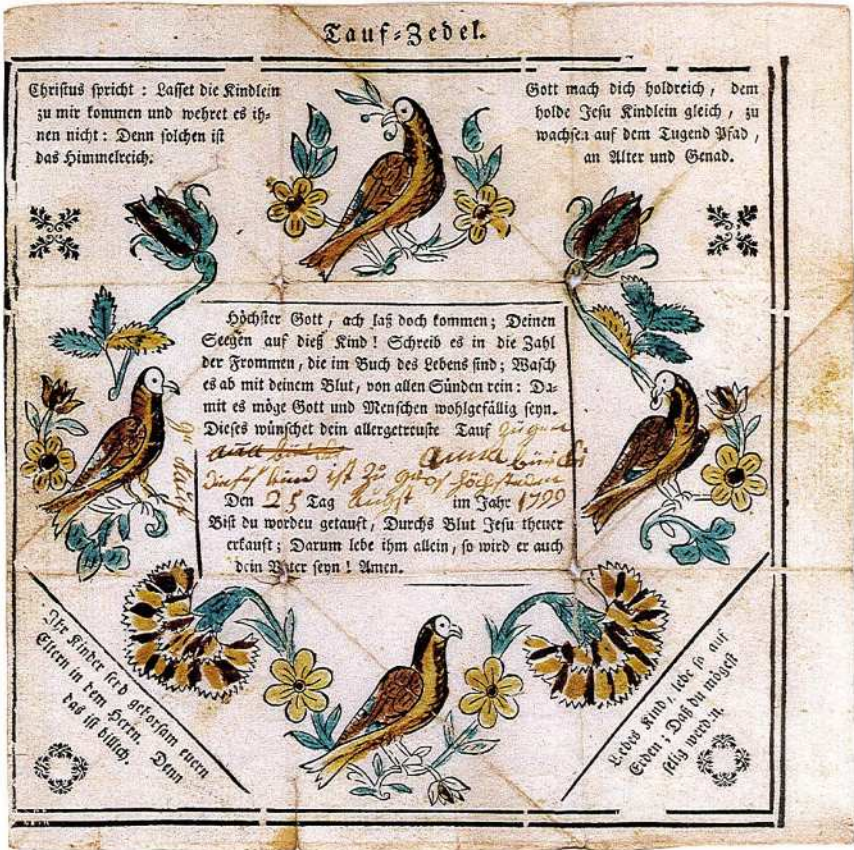 Tauf-Zedel.
Christus spricht : Lasset die Kindlein
zu mir kommen und wehret es ih-
nen nicht : Denn solchen ist
das Himmelreich.
Gott mach dich holdreich , dem
holde Jesu Kindlein gleich , zu
wachsen auf dem Tugend Pfad ,
an Alter und Genad.
Höchster Gott , ach laß doch kommen ; Deinen
Seegen auf dieß Kind ! Schreib es in die Zahl
der Frommen , die im Buch des Lebens sind ; Wasch
es ab mit deinem Blut , von allen Sünden rein : Da-
mit es möge Gott und Menschen wohlgefällig seyn.
Dieses wünschet dein allergetreuste Tauf Zugen
anna
dieses kind ist zu
Den 25 Tag Augst im Jahr 1799
Bist du worden getauft , Durchs Blut Jesu theuer
erkauft ; Darum lebe ihm allein , so wird er auch
dein Vater seyn ! Amen.
Ihr Kinder seyd gehorsam euern
Eltern in dem Herrn , Denn
das ist billich.
Liebes Kind , lebe so auf
Erden ; Daß du mögest
selig werden.